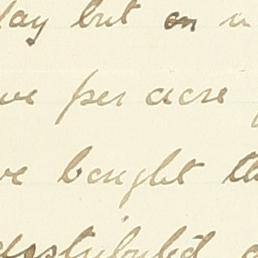 lay but on a
ve per acre
ve bought th
distributed